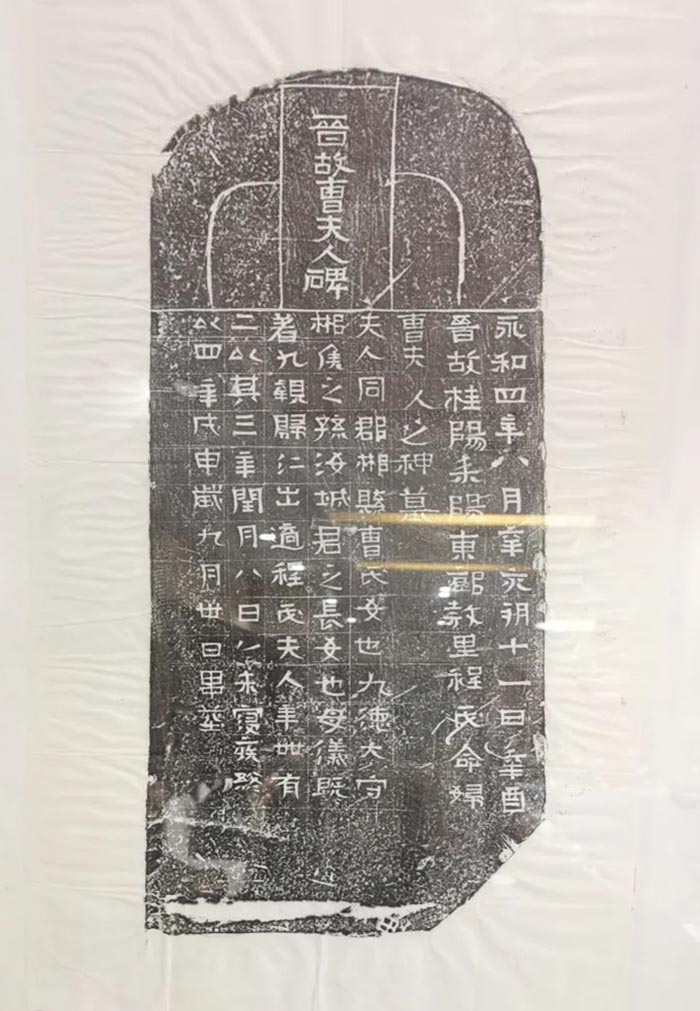 晉故曹夫人碑
永和四年八月辛亥朔十一日辛酉
晉故桂陽耒陽東里程氏命婦
曹夫人之神墓
夫人同郡郴縣曹氏女也九德太守
郴侯之孫汝城君之長女也母儀既
著九親歸仁出適程氏夫人年卅有
二以其三年閏月八日未寢疾終
以四年戊申歲九月卅日畢葬